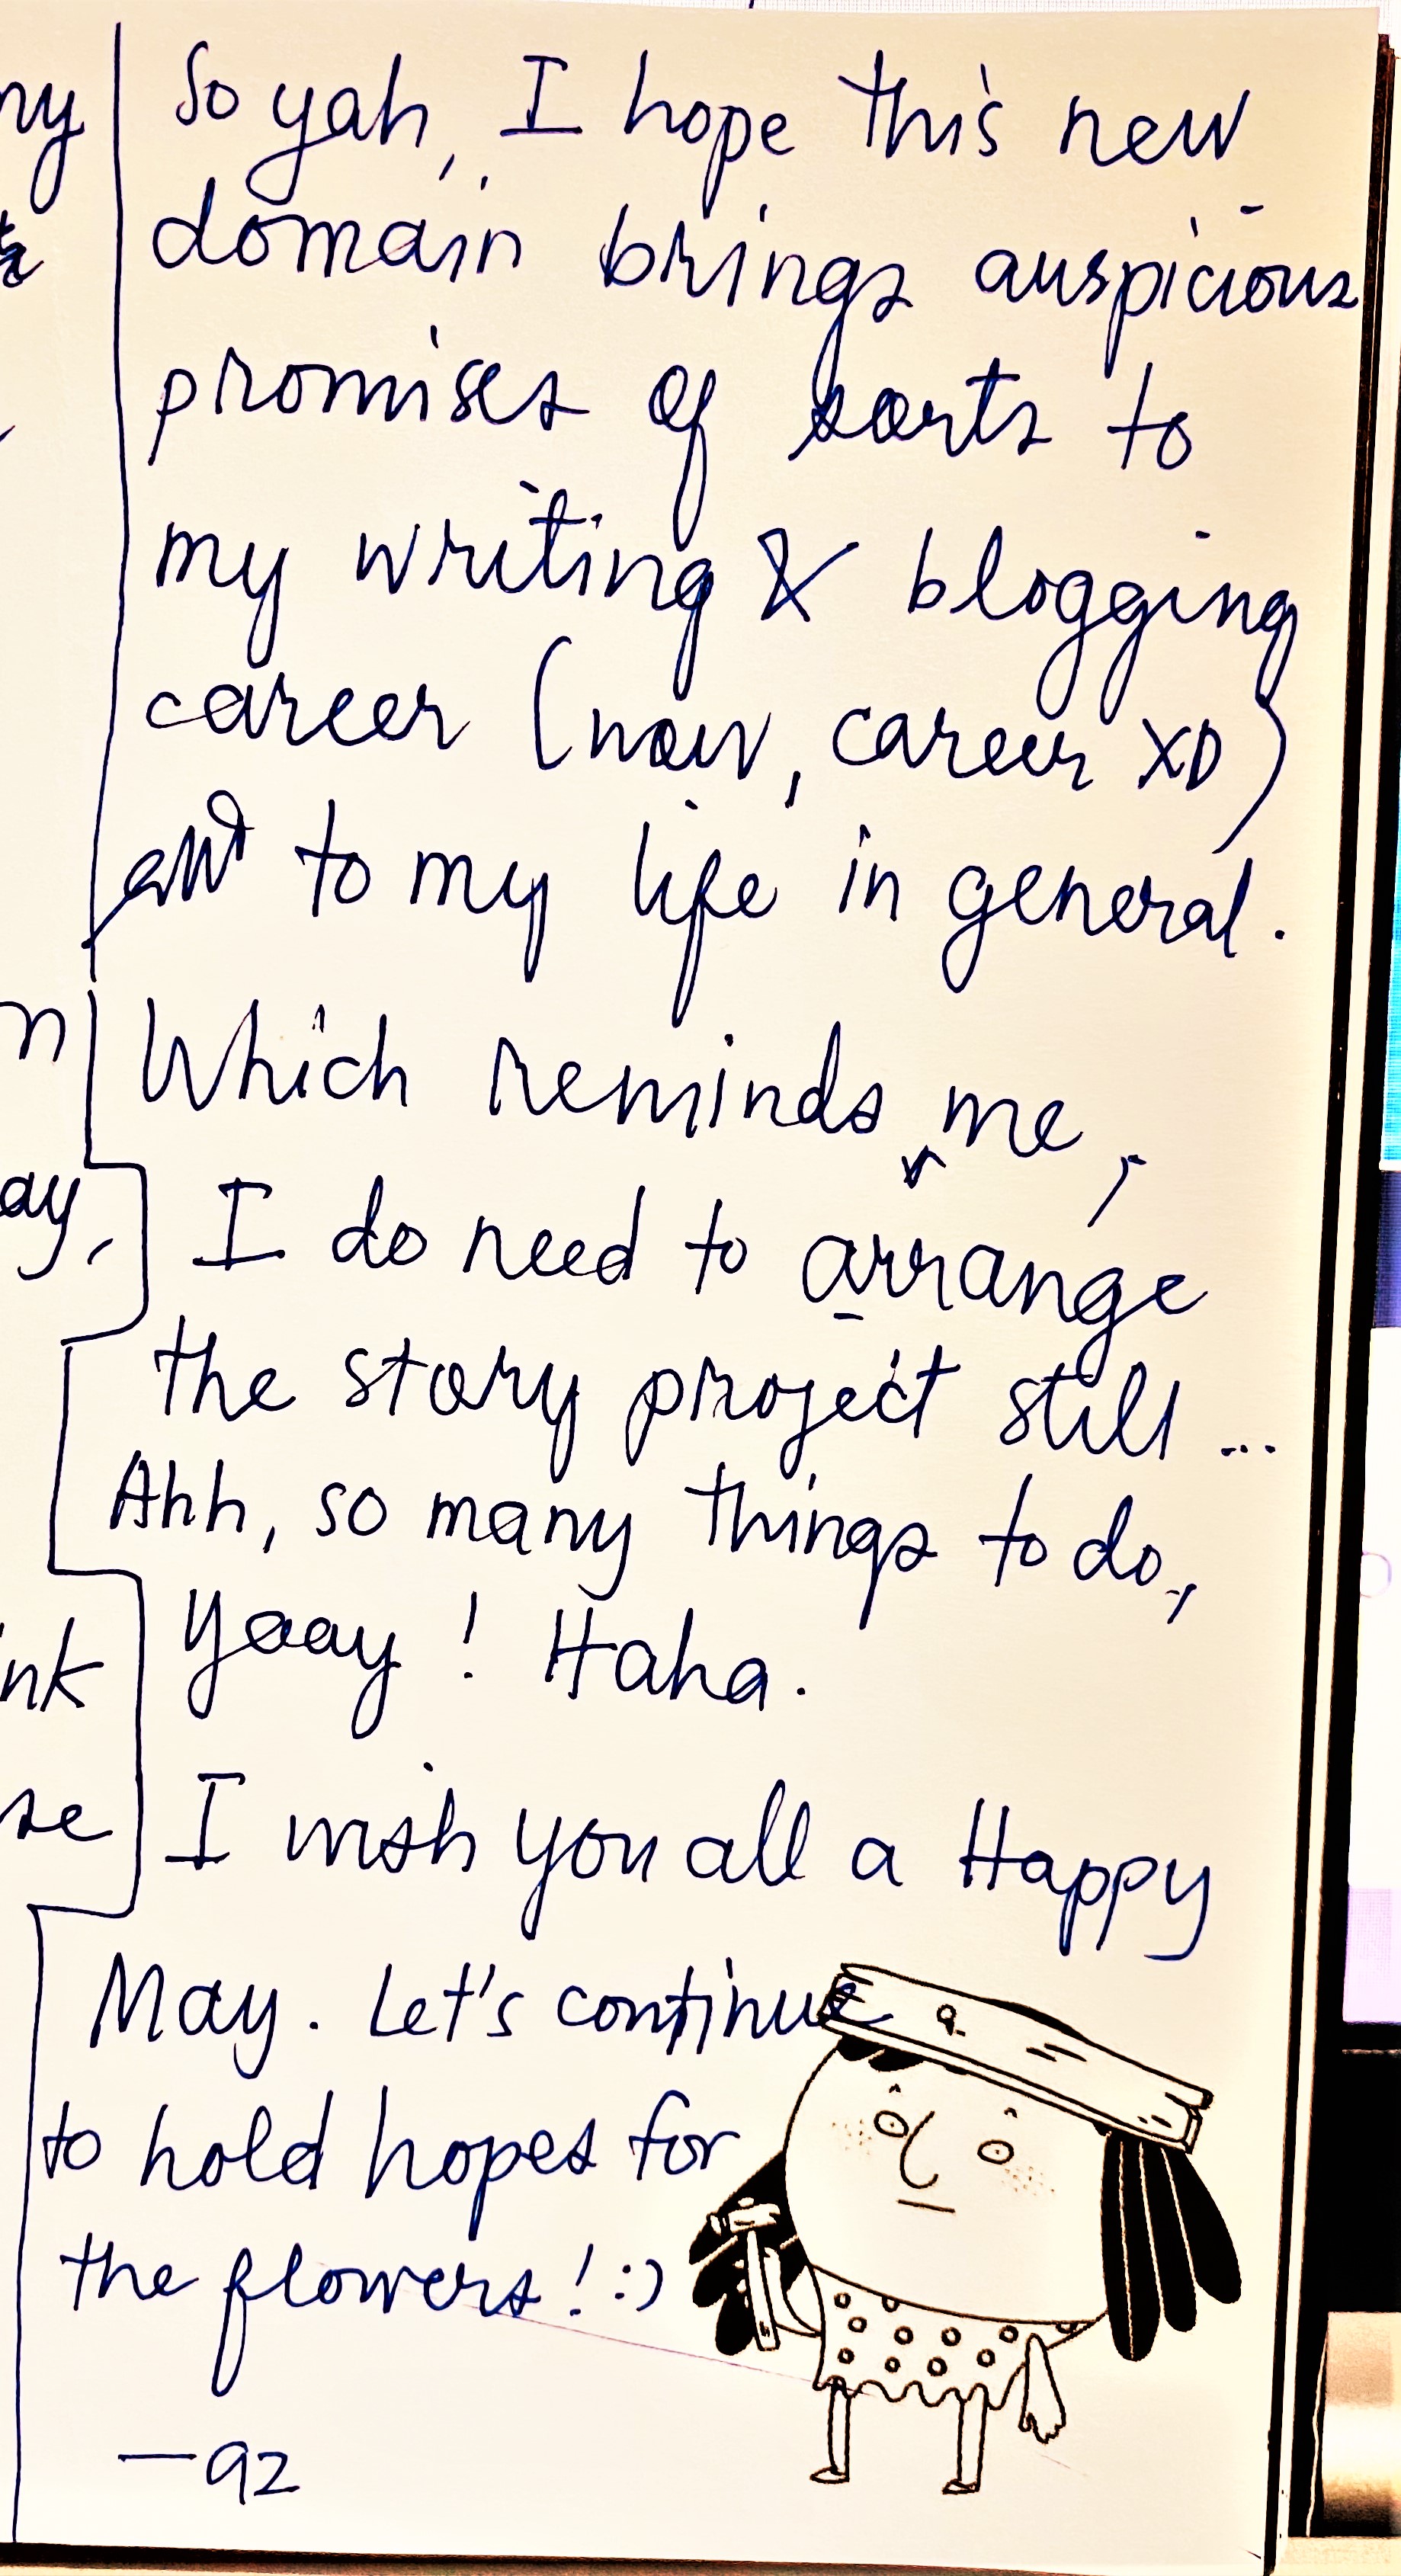 So yah, I hope this new
domain brings auspicious
promises of sorts to
my writing & blogging
career (now, career XD)
and to my life in general.
Which reminds me,
I do need to arrange
the story project still...
Ahh, so many things to do,
Yaay! Haha.
I wish you all a Happy
May. Let's continue
to hold hopes for
the flowers! :)
—92
ny
n
ay,
nk
se